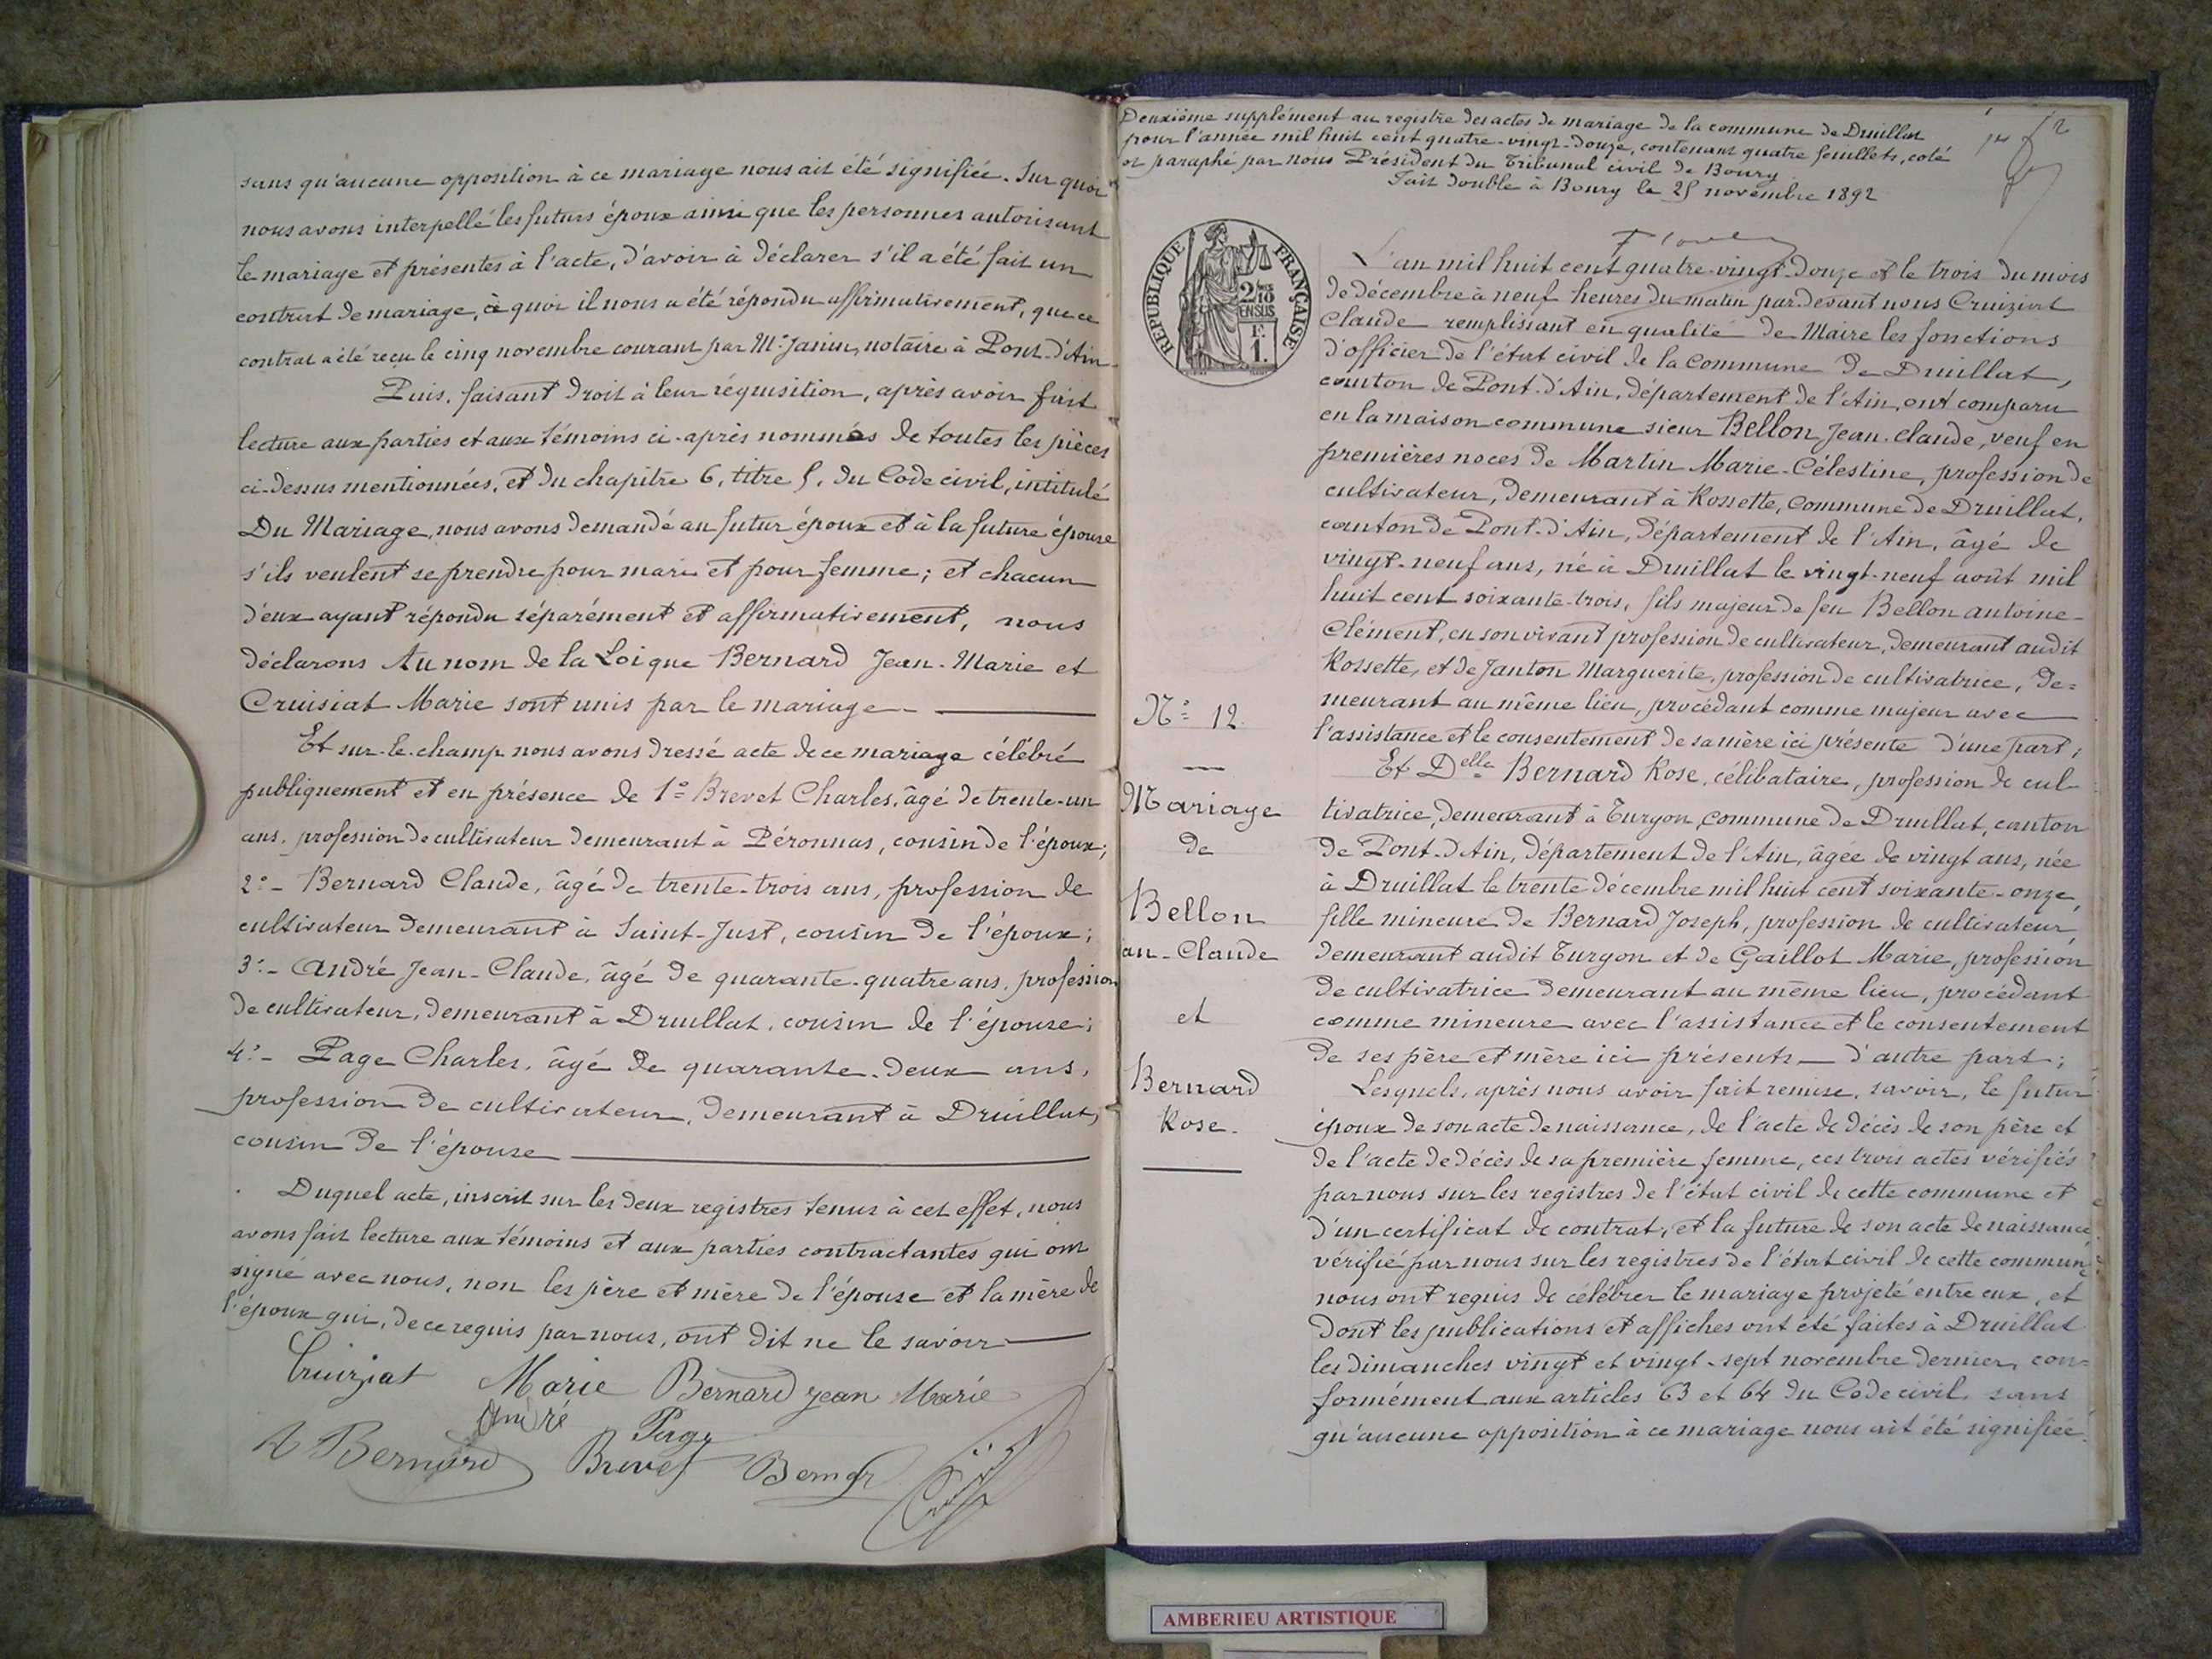 sans qu'aucune opposition à ce mariage nous ait été signifiée. Sur quoi
nous avons interpellé les futurs époux ainsi que les personnes autorisant
le mariage et présentes à l'acte, d'avoir à déclarer s'il a été fait un
contrat de mariage, à quoi il nous a été répondu affirmativement, que ce
contrat a été reçu le cinq novembre courant par Me Janin, notaire à Pont-d'Ain.
Puis, faisant droit à leur réquisition, après avoir fait
lecture aux parties et aux témoins ci-après nommés de toutes les pièces
ci-dessus mentionnées, et du chapitre 6, titre 5, du Code civil, intitulé
Du Mariage, nous avons demandé au futur époux et à la future épouse
s'ils veulent se prendre pour mari et pour femme; et chacun
d'eux ayant répondu séparément et affirmativement, nous
déclarons Au nom de la Loi que Bernard Jean-Marie et
Cruisiat Marie sont unis par le mariage
Et sur-le-champ nous avons dressé acte de ce mariage célébré
publiquement et en présence de 1° Brevet Charles, âgé de trente-un
ans, profession de cultivateur demeurant à Péronnas, cousin de l'époux;
2°- Bernard Claude, âgé de trente-trois ans, profession de
cultivateur demeurant à Saint-Just, cousin de l'époux;
3°- André Jean-Claude, âgé de quarante-quatre ans, profession
de cultivateur, demeurant à Druillat, cousin de l'épouse;
4°- Page Charles, âgé de quarante-deux ans,
profession de cultivateur, demeurant à Druillat,
cousin de l'épouse
Duquel acte, inscrit sur les deux registres tenus à cet effet, nous
avons fait lecture aux témoins et aux parties contractantes qui ont
signé avec nous, non les père et mère de l'épouse et la mère de
l'époux qui, de ce requis par nous, ont dit ne le savoir
Cruiziat Marie Bernard jean Marie
André Page
Bernard Brevet Bernard
Deuxième supplément au registre des actes de mariage de la commune de Druillat
pour l'année mil huit cent quatre-vingt-douze, contenant quatre feuillets, coté
et paraphé par nous Président du Tribunal civil de Bourg
Fait double à Bourg le 25 novembre 1892
RÉPUBLIQUE FRANÇAISE
2/10
EN SUS
F.
1.
L'an mil huit cent quatre-vingt-douze et le trois du mois
de décembre à neuf heures du matin par-devant nous Cruiziat
Claude remplissant en qualité de Maire les fonctions
d'officier de l'état civil de la commune de Druillat,
canton de Pont-d'Ain, département de l'Ain, ont comparu
en la maison commune sieur Bellon Jean-Claude, veuf en
premières noces de Martin Marie-Célestine, profession de
cultivateur, demeurant à Rossette, commune de Druillat,
canton de Pont-d'Ain, département de l'Ain, âgé de
vingt-neuf ans, né à Druillat le vingt-neuf août mil
huit cent soixante-trois, fils majeur de feu Bellon antoine-
Clément, en son vivant profession de cultivateur, demeurant audit
Rossette, et de Janton Marguerite, profession de cultivatrice, de=
meurant au même lieu, procédant comme majeur avec
l'assistance et le consentement de sa mère ici présente d'une part;
Et Delle Bernard Rose, célibataire, profession de cul-
tivatrice, demeurant à Turgon, commune de Druillat, canton
de Pont-d'Ain, département de l'Ain, âgée de vingt ans, née
à Druillat le trente décembre mil huit cent soixante-onze,
fille mineure de Bernard Joseph, profession de cultivateur,
demeurant audit Turgon et de Gaillot Marie, profession
de cultivatrice demeurant au même lieu, procédant
comme mineure avec l'assistance et le consentement
de ses père et mère ici présents d'autre part;
Lesquels, après nous avoir fait remise, savoir, le futur
époux de son acte de naissance, de l'acte de décès de son père et
de l'acte de décès de sa première femme, ces trois actes vérifiés
par nous sur les registres de l'état civil de cette commune et
d'un certificat de contrat; et la future de son acte de naissance,
vérifié par nous sur les registres de l'état civil de cette commune
nous ont requis de célébrer le mariage projeté entre eux, et
dont les publications et affiches ont été faites à Druillat
les dimanches vingt et vingt-sept novembre dernier, con=
formément aux articles 63 et 64 du Code civil, sans
qu'aucune opposition à ce mariage nous ait été signifiée.
N° 12
Mariage
de
Bellon
an-Claude
et
Bernard
Rose.
AMBERIEU ARTISTIQUE